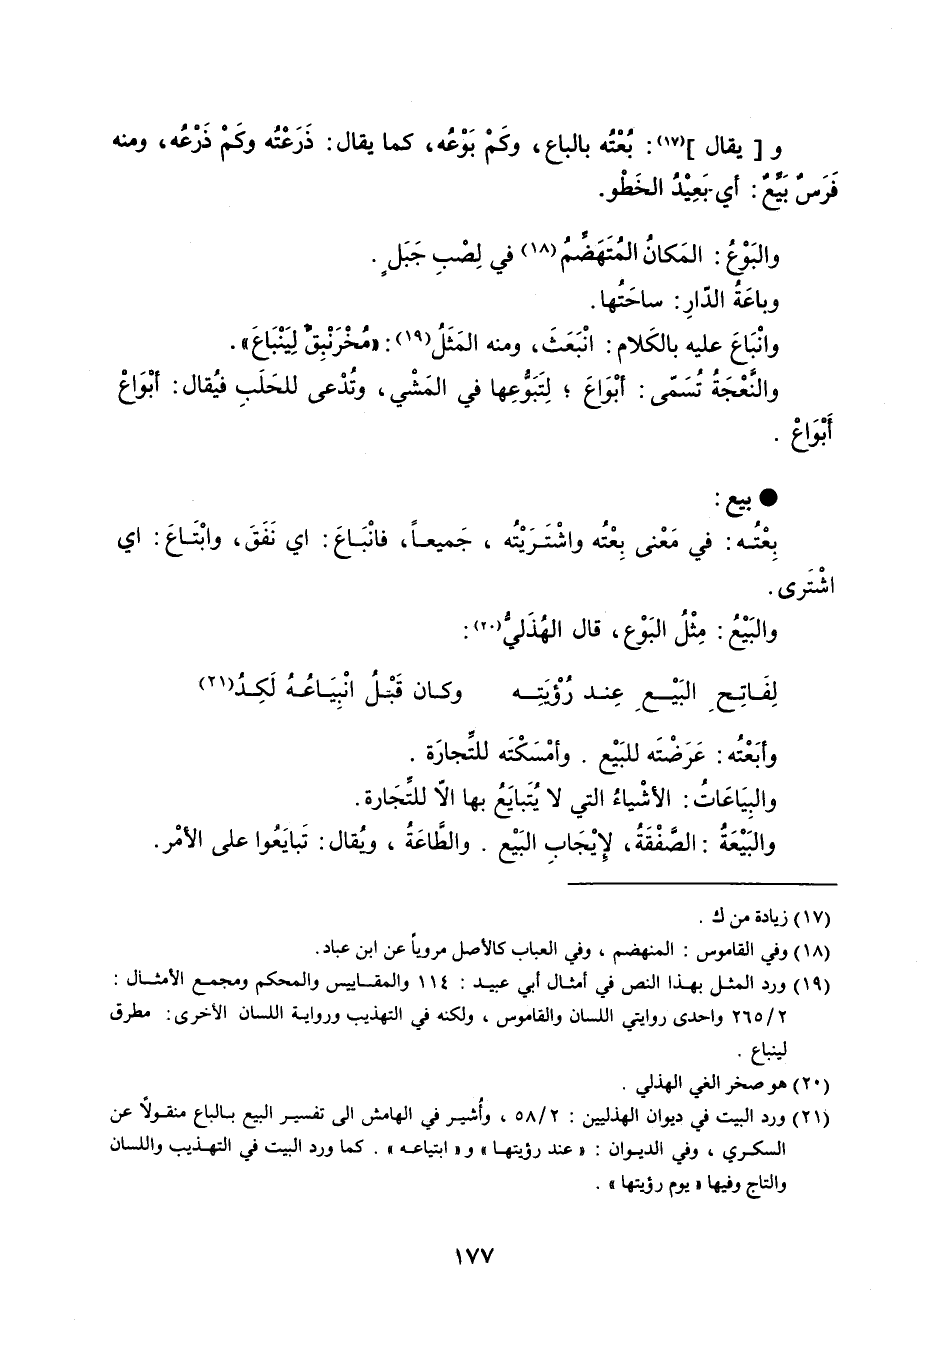 و [ يقال ](١٧): بُعْتُه بالباع، وكَمْ بَوْعُه، كما يقال: ذَرَعْتُه وكَمْ ذَرْعُه، ومنه
فَرَسٌ بَيِّعٌ: أي بَعِيْدُ الخَطْو.
والبَوْعُ: المَكانُ المُتَهَضِّمُ(١٨) في لِصْبِ جَبَلٍ.
وباعَةُ الدّارِ: ساحَتُها.
وانْبَاعَ عليه بالكَلام: انْبَعَثَ، ومنه المَثَلُ(١٩): «مُخْرَنْبِقٌ لِيَنْبَاعَ».
والنَّعْجَةُ تُسَمّى: أبْوَاعَ ؛ لِتَبَوُّعِها في المَشْي، وتُدْعى للحَلَبِ فيُقال: أبْوَاعْ
أَبْوَاعْ .
● بيع :
بِعْتُـه: في مَعْنى بِعْتُه واشْتَـرَيْتُه ، جَميعـاً، فانْبَـاعَ: اي نَفَقَ، وابْتَـاعَ: اي
اشْتَرى.
والبَيْعُ: مِثْلُ البَوْع، قال الهُذَليُّ(٢٠):
لِفَـاتِـحِ البَيْـعِ عِنـد رُؤْيَتِـه وكـان قَبْـلُ انْبِيَـاعُـهُ لَكِـدُ(٢١)
وأبَعْتُه: عَرَضْتَه للبَيْع . وأمْسَكْتَه للتِّجارَة .
والبِيَاعَاتُ: الأشْياءُ التي لا يُتَبايَعُ بها الاّ للتِّجَارة.
والبَيْعَةُ : الصَّفْقَةُ، لإِيْجَابِ البَيْع . والطَّاعَةُ ، ويُقال: تَبايَعُوا على الأمْر.
(١٧) زيادة من ك .
(١٨) وفي القاموس : المنهضم ، وفي العباب كالأصل مروياً عن ابن عباد.
(١٩) ورد المثـل بهـذا النص في أمثـال أبي عبيـد : ١١٤ والمقـاييس والمحكم ومجمع الأمثـال :
٢٦٥/٢ واحدى روايتي اللسان والقاموس ، ولكنه في التهذيب وروايـة اللسان الأخرى: مطرق
لينباع .
(٢٠) هو صخر الغي الهذلي .
(٢١) ورد البيت في ديوان الهذليين : ٥٨/٢ ، وأُشيـر في الهامش الى تفسيـر البيع بـالباع منقـولاً عن
السكـري ، وفي الديـوان : «عند رؤيتهـا» و«ابتياعـه» . كما ورد البيت في التهـذيب واللسان
والتاج وفيها «يوم رؤيتها» .
١٧٧